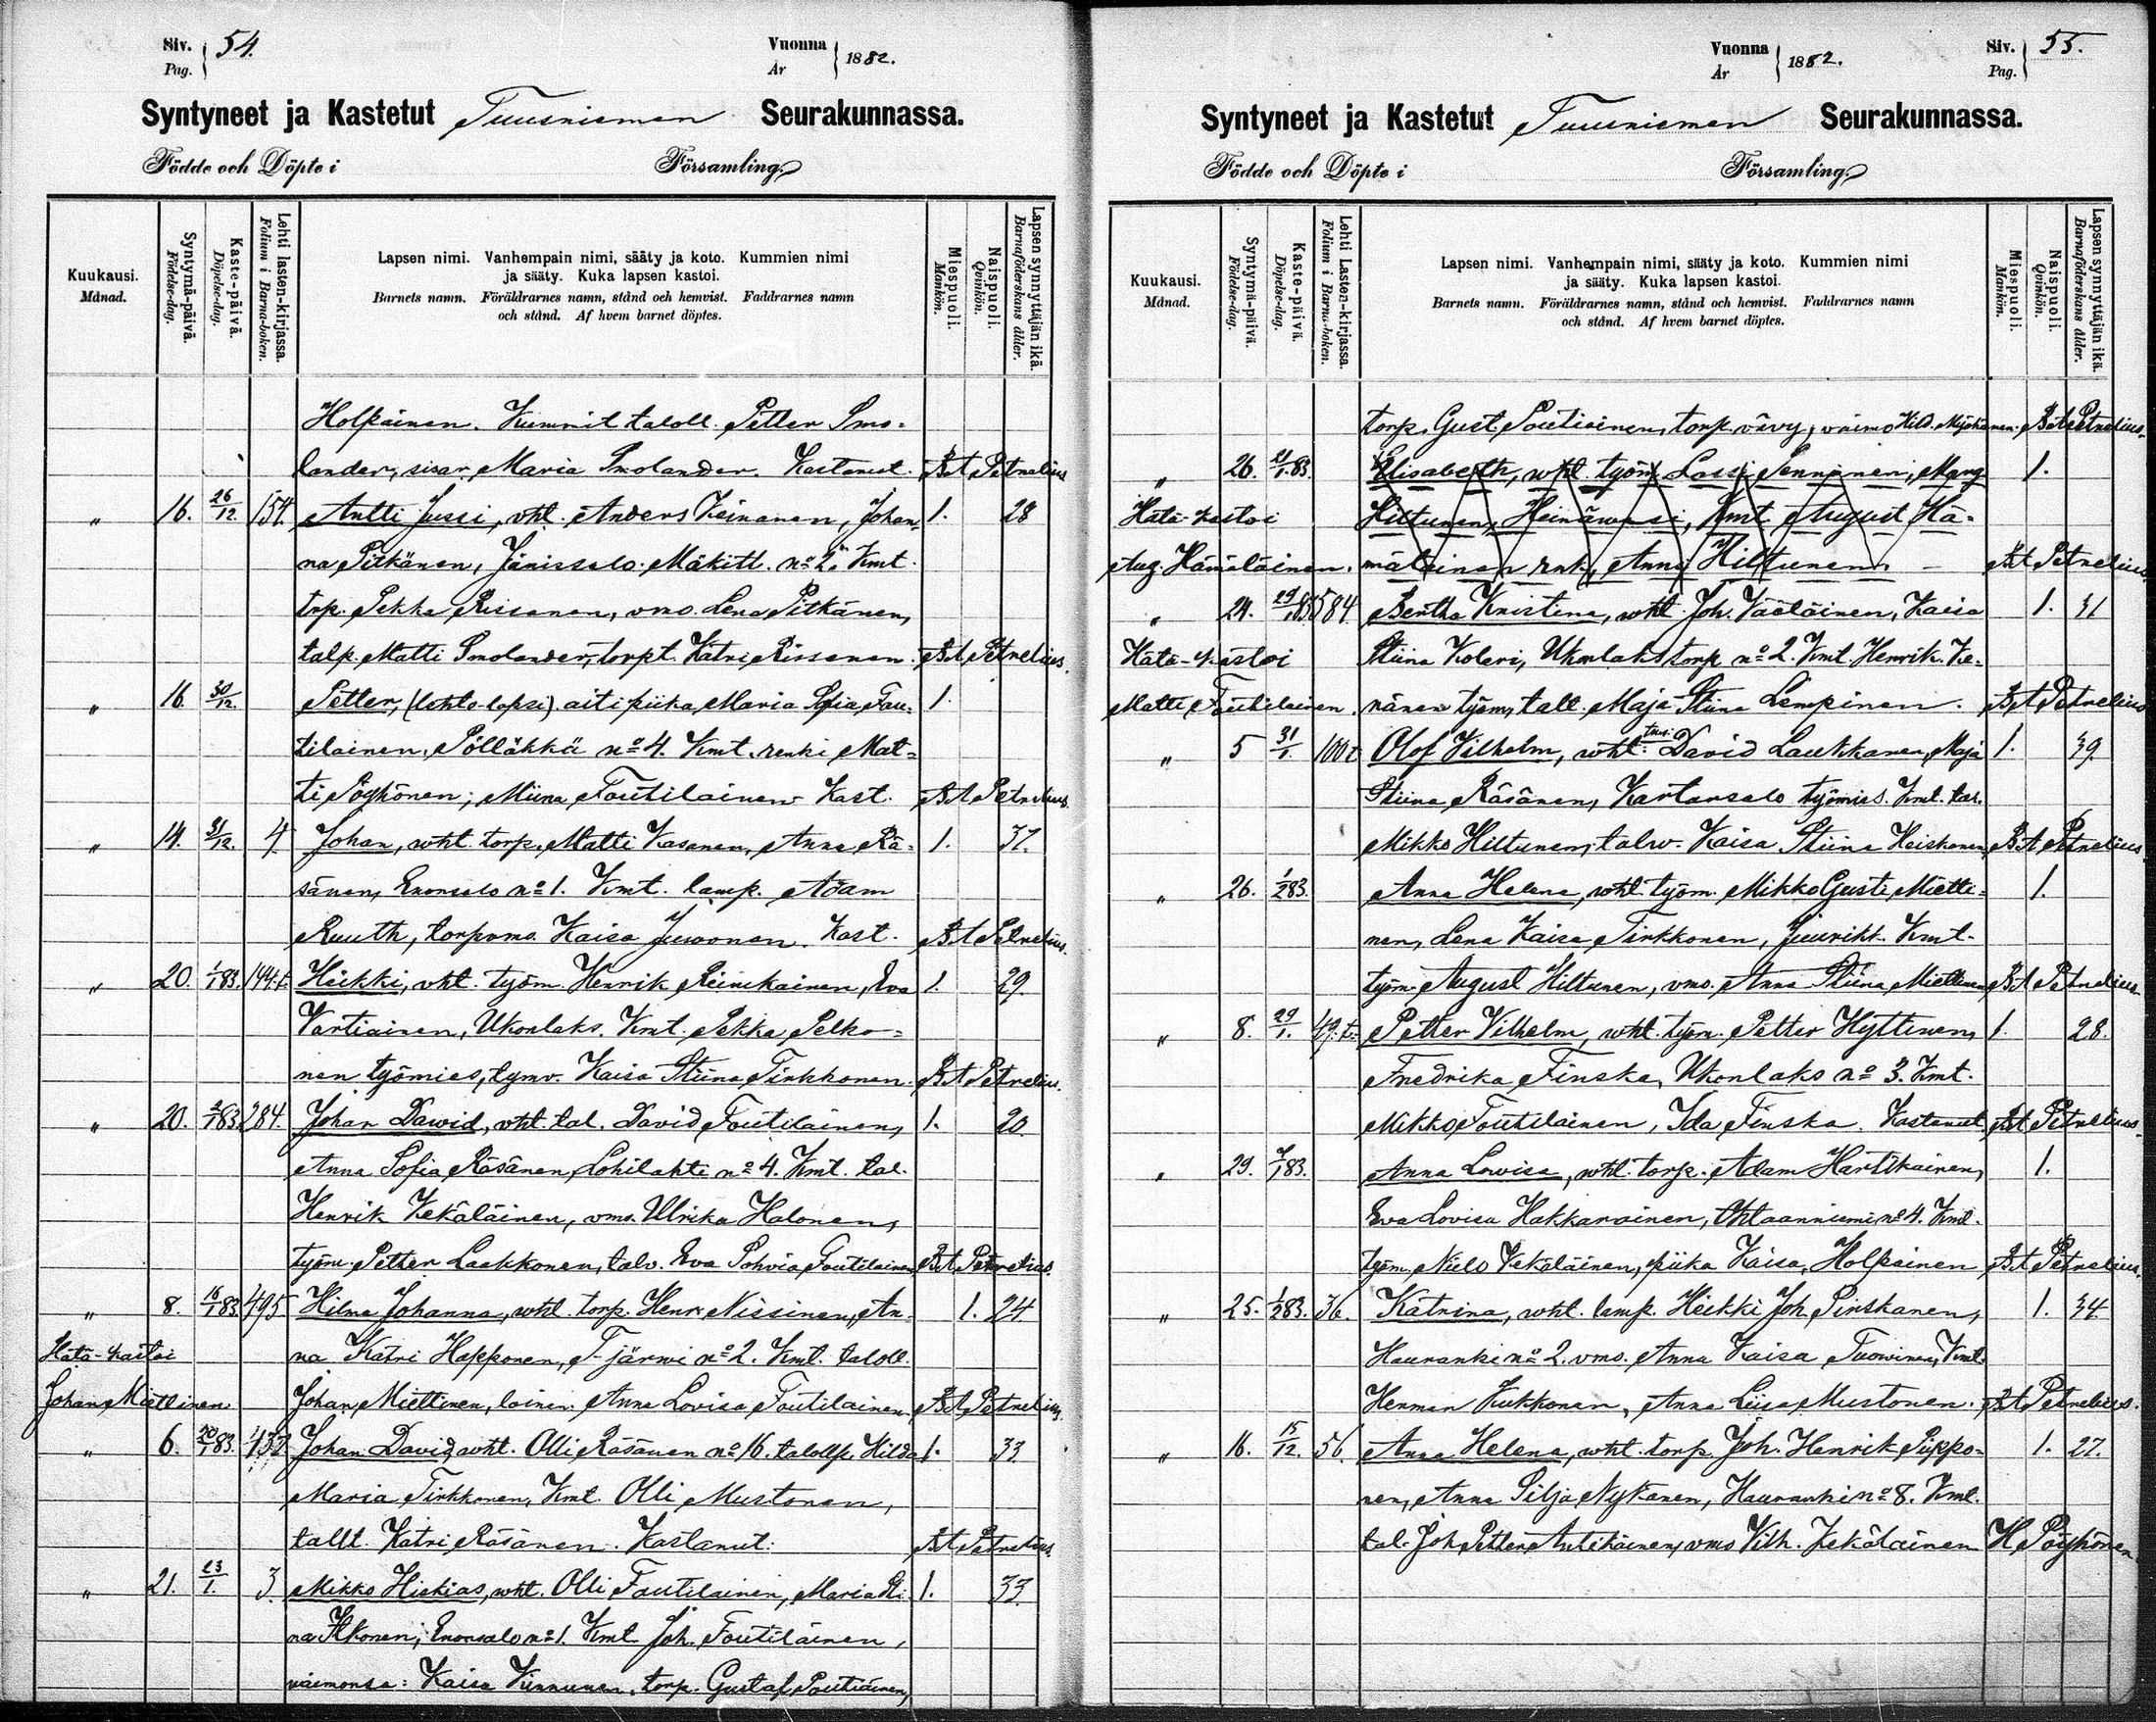 Siv. Pag. 54.
Vuonna År 1882.
Syntyneet ja Kastetut Tuusniemen Seurakunnassa.
Födde och Döpte i Församling.
Kuukausi. Månad.
Syntymä-päivä. Födelse-dag.
Kaste-päivä. Döpelse-dag.
Lehti lasten-kirjassa. Folium i Barna-boken.
Lapsen nimi. Vanhempain nimi, sääty ja koto. Kummien nimi
ja sääty. Kuka lapsen kastoi.
Barnets namn. Föräldrarnes namn, stånd och hemvist. Faddrarnes namn
och stånd. Af hvem barnet döptes.
Miespuoli. Mankön.
Naispuoli. Qvinkön.
Lapsen synnyttäjän ikä. Barnaföderskans ålder.
Holpainen. Kummit taloll. Petter Smo-
lander, sisar Maria Smolander. Kastanut. Petrelius
" 16. 26/12. 154. Antti Jussi, vht. Anders Keinanen, Johan- 1. 28
na Pitkänen, Jänissalo Mäkitt. no 2. Kmt.
trp. Pekka Rissanen, vmo. Lena Pitkänen,
talp. Matti Smolander, torpt. Katri Rissanen. Petrelius.
" 16. 30/12. Petter, (lehto-lapsi) äiti piika Maria Sofia Tou- 1.
tilainen, Pölläkkä no 4. Kmt. renki Mat-
ti Pöyhönen; Miina Toutilainen Kast. Petrelius.
" 14. 31/12. 4. Johan, wht. torp. Matti Kasanen, Anna Rä- 1. 37.
sänen, Enonsalo no 1. Kmt. lamp. Adam
Ruuth, torpvmo. Kaisa Juwonen. Kast. Petrelius.
" 20. 1/1 83. 144.t. Heikki, vht. työm. Henrik Reinikainen, Eva 1. 29.
Vartiainen, Ukonlaks. Kmt. Pekka Pelko-
nen työmies, tymv. Kaisa Stiina Tirkkonen. Petrelius.
" 20. 2/1 83. 284. Johan Dawid, vht. tal. David Toutilainen, 1. 20.
Anna Sofia Räsänen, Lohilahti no 4. Kmt. tal.
Henrik Kekäläinen, vmo. Ulrika Halonen,
työm. Petter Laakkonen, talv. Eva Sohvia Toutilainen Petrelius.
" 8. 16/1 83. 495 Hilma Johanna, wht. torp. Henr. Nissinen, An- 1. 24
Hätä-kastoi na Katri Happonen, T-järwi no 2. Kmt. taloll.
Johan Miettinen Johan Miettinen, loinen Anna Lovisa Toutilainen Petrelius.
" 6. 20/1 83. 437. Johan David, wht. Olli Räsänen no 16. talollp. Hilda 1. 33
Maria Tirkkonen, Kmt. Olli Mustonen,
tallt. Katri Räsänen. Kastanut: Petrelius.
" 21. 23/1. 3. Mikko Hiskias, wht. Olli Toutilainen, Maria Sti- 1. 33.
na Itkonen; Enonsalo no 1. Kmt Joh. Toutilainen,
vaimonsa: Kaisa Kinnunen, torp. Gustaf Poutiainen,
Vuonna År 1882.
Siv. Pag. 55.
Syntyneet ja Kastetut Tuusniemen Seurakunnassa.
Födde och Döpte i Församling.
Kuukausi. Månad.
Syntymä-päivä. Födelse-dag.
Kaste-päivä. Döpelse-dag.
Lehti Lasten-kirjassa. Folium i Barna-boken.
Lapsen nimi. Vanhempain nimi, sääty ja koto. Kummien nimi
ja sääty. Kuka lapsen kastoi.
Barnets namn. Föräldrarnes namn, stånd och hemvist. Faddrarnes namn
och stånd. Af hvem barnet döptes.
Miespuoli. Mankön.
Naispuoli. Qvinkön.
Lapsen synnyttäjän ikä. Barnaföderskans ålder.
torp. Gust Poutiainen, torp. vävy, vaimo Hild. Petrelius.
" 26. 21/1 83. Elisabeth, wht. työm Lassi Sennanen, Marg 1.
Hätä-kastoi Hiltunen, Heinäwesi, Kmt August Hä-
Aug. Hämäläinen. mäläinen rnk, Anna Hiltunen. Petrelius
" 24. 29/1 83 584 Bertha Kristina, wht. Joh. Väätäinen, Kaisa 1. 31
Hätä-kastoi Stiina Koleri, Ukonlaks torp no 2. Kmt. Henrik Ke-
Matti Toutilainen. nänen työm, tall. Maja Stiina Lempinen. Petrelius
" 5 31/1. 100t Olof Vilhelm, wht. David Laukkanen, Maja 1. 39.
Stiina Räsänen, Kartansalo työmies. Kmt. tal.
Mikko Hiltunen, talw. Kaisa Stiina Heiskanen Petrelius
" 26. 1/2 83. Anna Helena, wht. työm. Mikko Gusti Mietti- 1.
nen, Lena Kaisa Tirkkonen, Juurikk. Kmt.
työm. August Hiltunen, vmo. Anna Stiina Miettinen Petrelius
" 8. 29/1. 49.t. Petter Vilhelm, wht. työm. Petter Hyttinen, 1. 28.
Fredrika Finska, Ukonlaks no 3. Kmt.
Mikko Toutilainen, Ida Finska. Kastanut Petrelius.
" 29. 7/1 83. Anna Lowisa, wht. torp. Adam Hartikainen, 1.
Eva Lovisa Hakkarainen, Ohtaanniemi no 4. Kmt.
työm. Niels Kekäläinen, piika Kaisa Holpainen Petrelius.
" 25. 1/2 83. 36. Katrina, wht. lamp. Heikki Joh. Pirskanen, 1. 34.
Hauranki no 2. vmo. Anna Kaisa Tuowinen, Kmt.
Herman Kukkonen, Anna Leisa Mustonen. Petrelius.
" 16. 15/12. 56. Anna Helena, wht. torp. Joh. Henrik Piippo- 1. 27.
nen, Anna Silja Nykänen, Hauranki no 8. Kmt.
tal. Joh Petter Antikainen, vmo Vilh. Kekäläinen H Pöyhönen